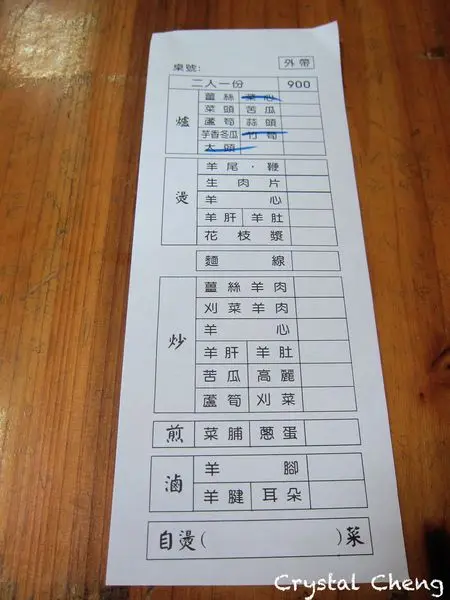 桌號: 外帶
二人一份 900
爐
薑絲 菜心
菜頭 苦瓜
蘆筍 蒜頭
芋香冬瓜 竹筍
大頭
燙
羊尾．鞭
生肉片
羊心
羊肝 羊肚
花枝漿
麵線
炒
薑絲羊肉
刈菜羊肉
羊心
羊肝 羊肚
苦瓜 高麗
蘆筍 刈菜
煎
菜脯 蔥蛋
滷
羊腳
羊腱 耳朵
自燙( )菜
Crystal Cheng